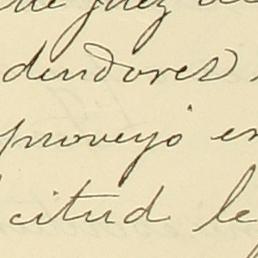 juez
deudores
proveyó en
citud le